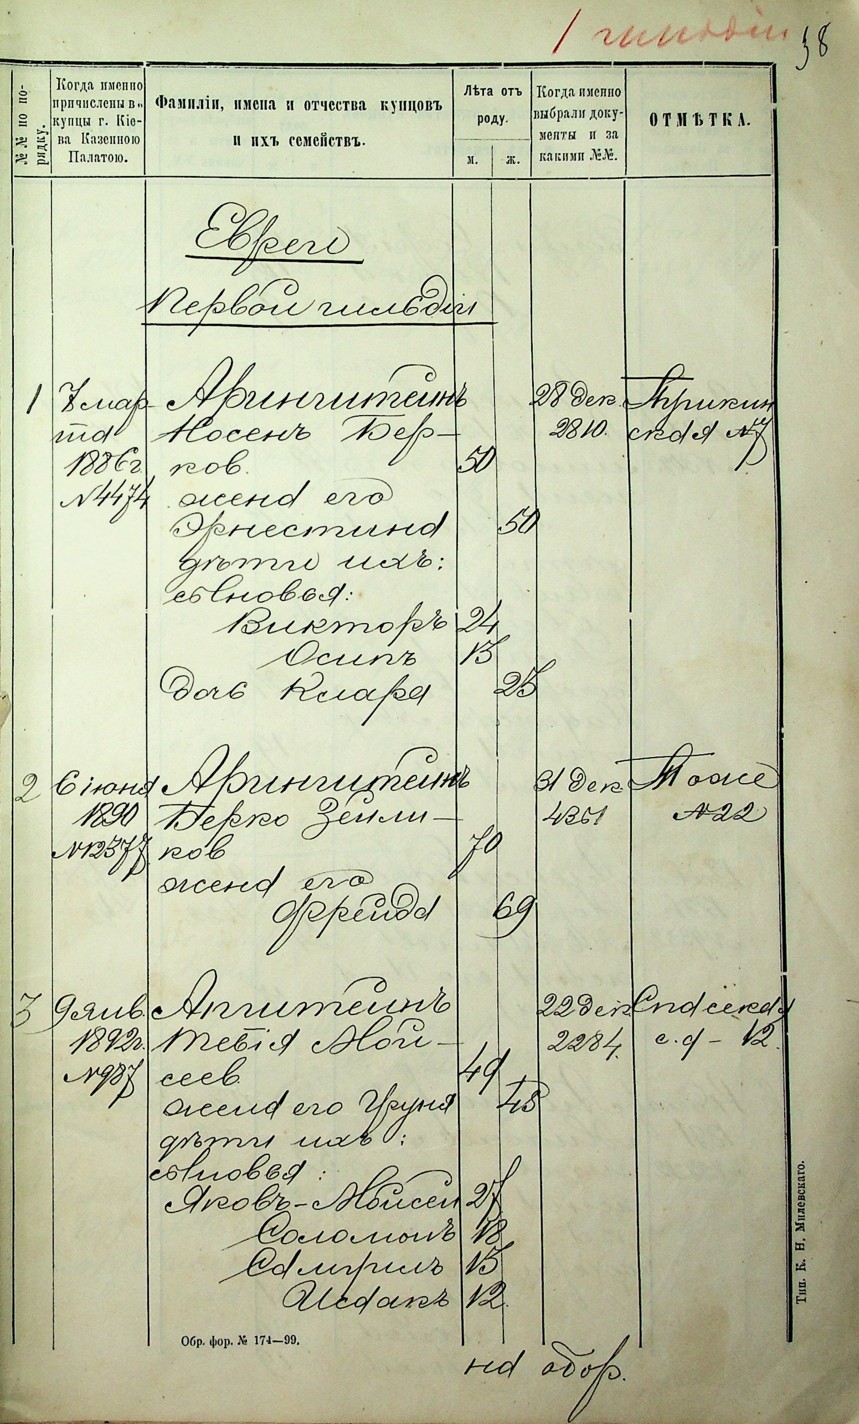 1 гильдіи 38
№№ по порядку.
Когда именно причислены въ купцы г. Кіева Казенною Палатою.
Фамиліи, имена и отчества купцовъ и ихъ семействъ.
Лѣта отъ роду.
м. ж.
Когда именно выбрали документы и за какими №№.
ОТМѢТКА.
Евреи
Первой гильдіи
1 7 мар- Аринштейнъ 28 дек.
та Носенъ Бер- 2810. ская №7
1886г. ков 50
№4474 жена его
Эрнестина 50
дѣти ихъ:
сыновья:
Викторъ 24
Осипъ 15
Дочь Клара 25
2 6 іюня Аринштейнъ 31 дек. Тоже
1890 Берко Зейли- 4361 №22
№12577 ков 70
жена его
Фрейда 69
3 9 янв. Апштейнъ 22 дек. Спасская
1892г. Тевія Мой- 2284. с.д - 12
№987 сеев 49
жена его Груня 45
дѣти ихъ:
сыновья:
Яковъ-Мойсей 27
Соломонъ 18
Самуилъ 15
Исаакъ 12
Обр. фор. № 174—99.
на обор.
Тип. К. Н. Милевскаго.